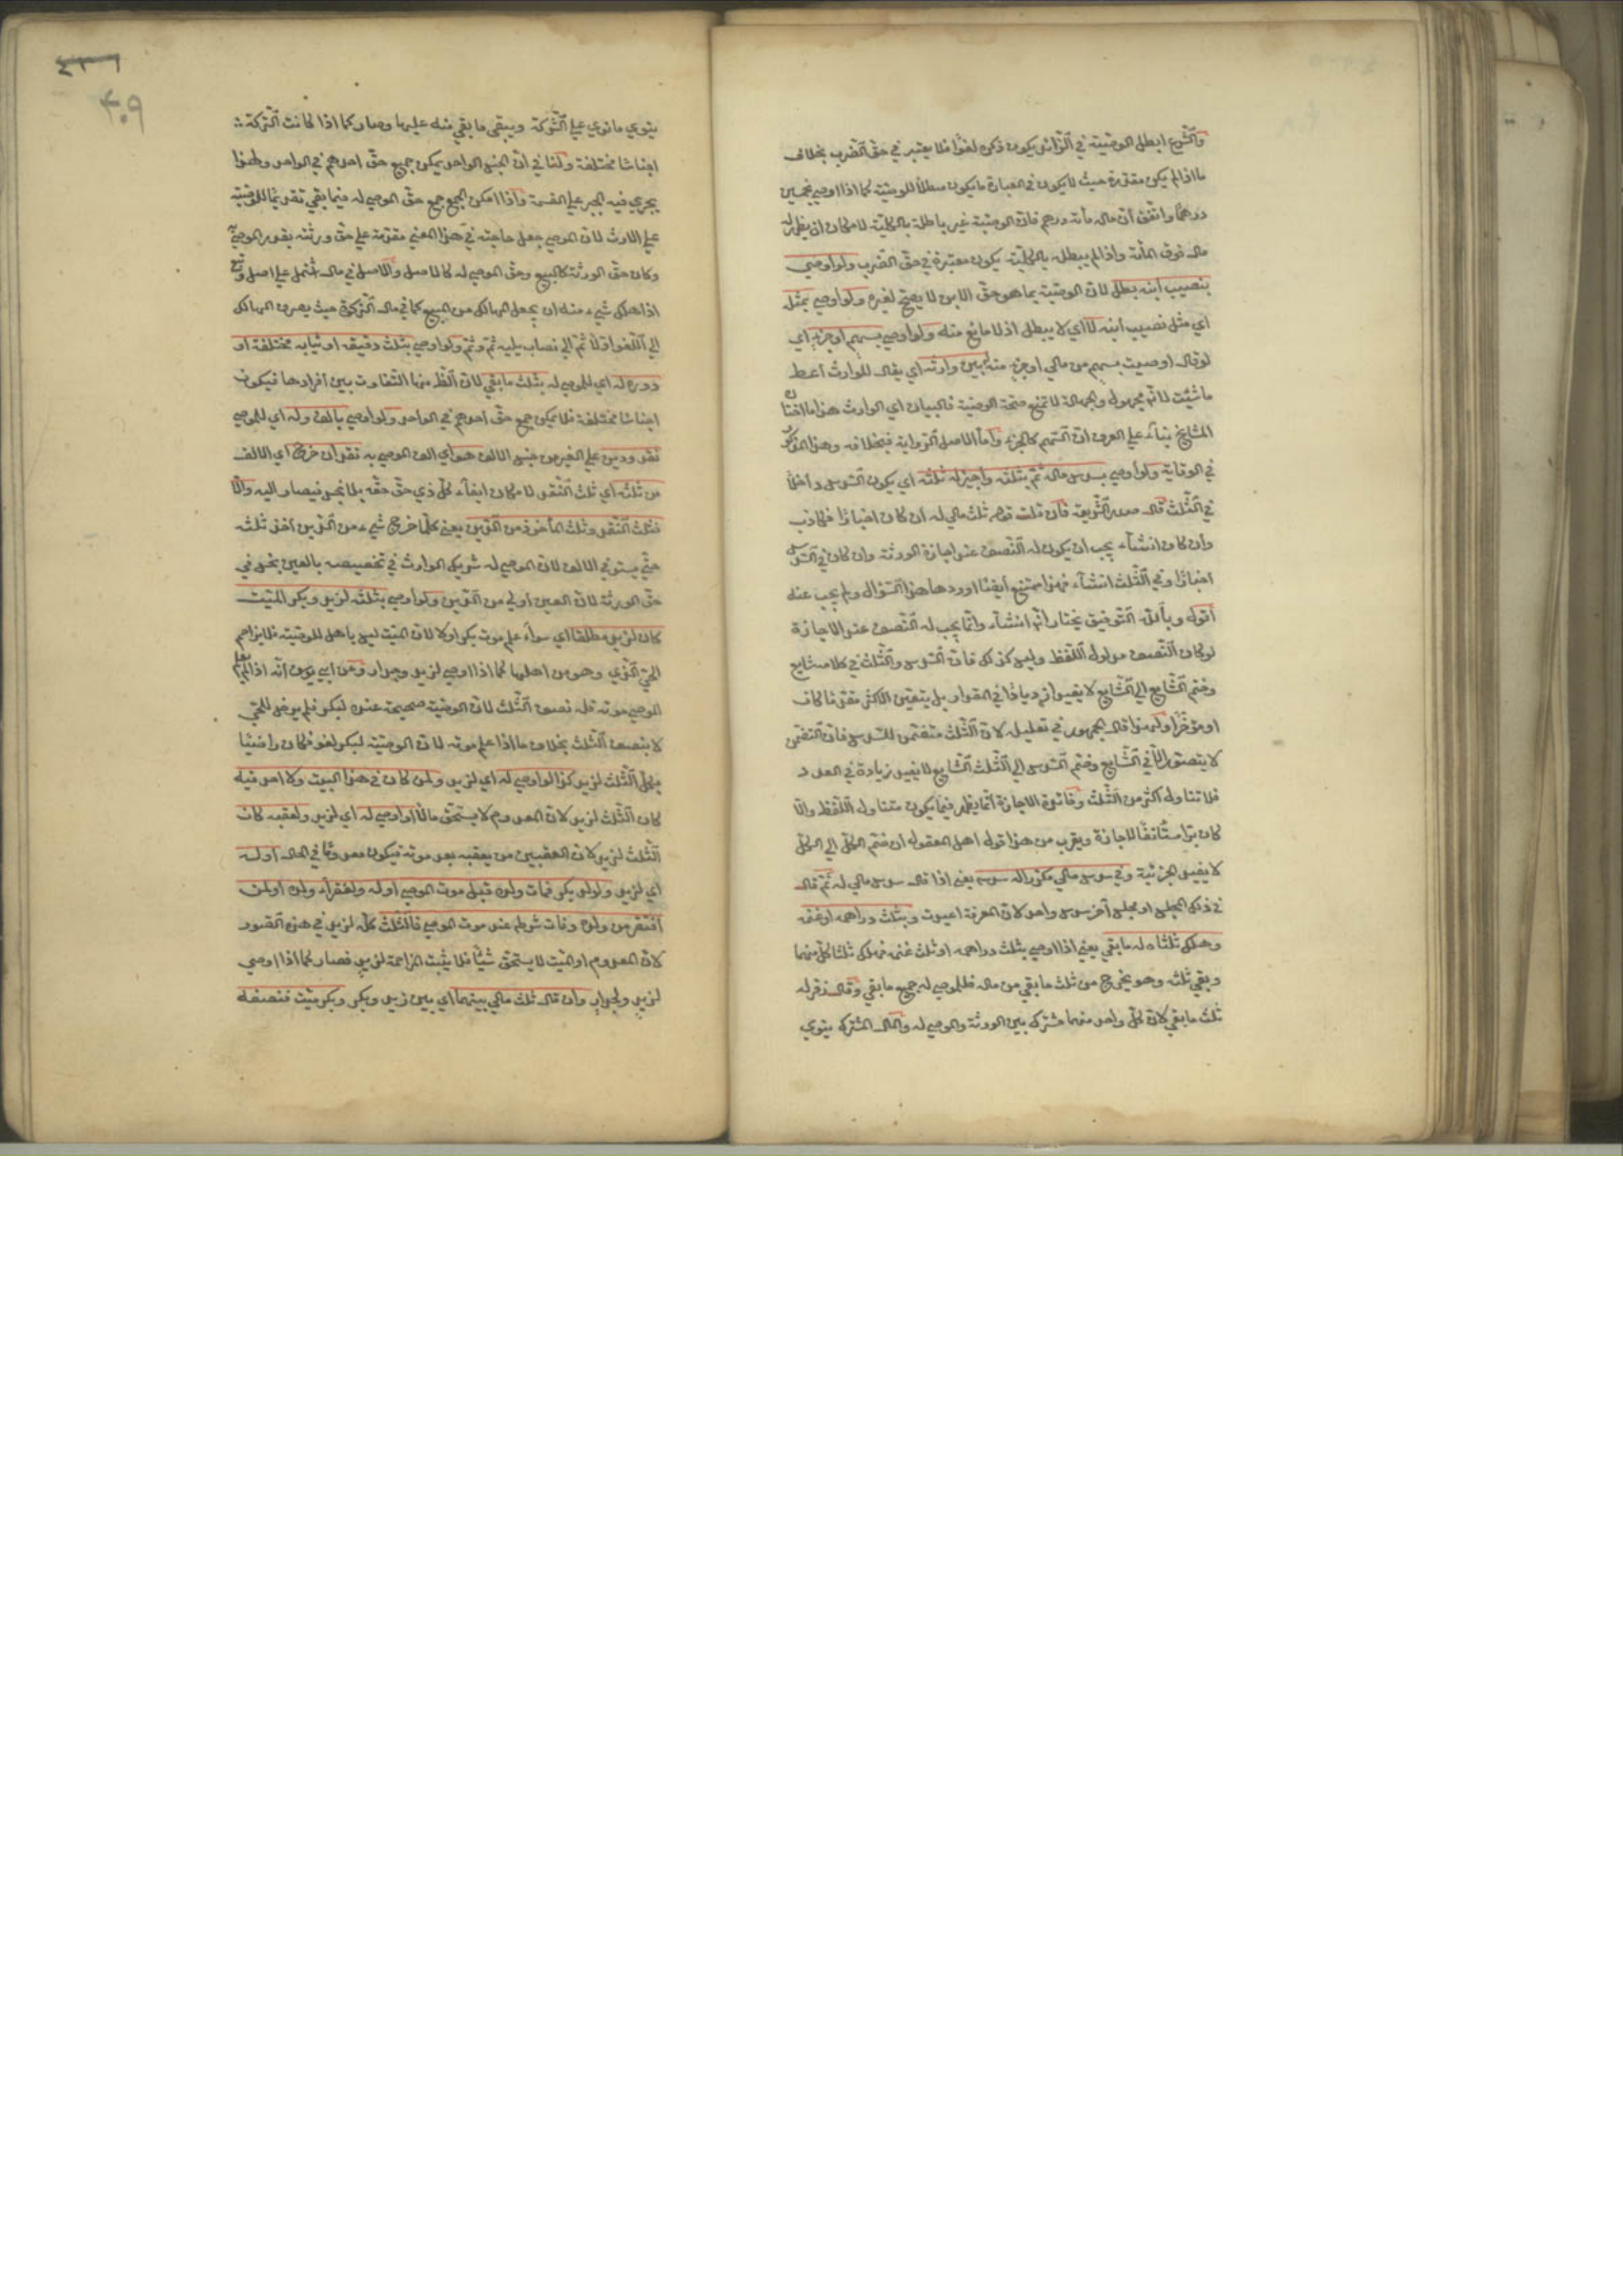 والشرع ابطل الوصية في الزائد يكون ذكره لغوا فلا يعتبر في حق الضرب بخلاف
ما اذا لم يكن مقدرة حيث لا يكون في العبارة ما يكون مبطلا للوصية كما اذا اوصي بخمسين
درهما واتفق أن ماله مأئة درهم فان الوصية غير باطلة بالكلية لامكان ان يظهر له
مال فوق المأئة واذا لم يبطل بالكلية يكون معتبرة في حق الضرب ولو اوصي
بنصيب ابنه بطل لان الوصية بما هو حق الابن لا يصح لغيره ولو اوصي بمثل
اي مثل نصيب ابنه لا اي لا يبطل اذ لا مانع منه ولو اوصي بسهم او جزء اي
لو قال اوصيت بسهم من مالي او جزء منه يبين وارثه اي يقال للوارث أعط
ما شئت لانه مجهول والجهالة لا تمنع صحة الوصية فالبيان اي الوارث هذا ما اختاره
المشايخ بناء علي العرف ان السهم كالجزء واما الاصل الرواية فبخلافه وهذا المذكور
في الوقاية ولو اوصي بسدس ماله ثم بثلثه واجيز له ثلثه اي يكون السدس داخلا
في الثلث قال صدر الشريعة فان قلت قوله ثلث مالي له ان كان اخبارا فكاذب
وان كان انشاء يجب ان يكون له النصف عند اجازة الورثة وان كان في السدس
اخبارا وفي الثلث انشاء فهذا ممتنع ايضا اورد هذا السؤال ولم يجب عنه
أقول وبالله التوفيق يختار انه انشاء وانما يجب له النصف عند الاجازة
لو كان النصف مدلول اللفظ وليس كذلك فان السدس والثلث في كلامه شايع
وضم الشايع الي الشايع لا يفيد ازديادا في المقدار بل يتعين الاكثر مقدما كان
او مؤخرا ولهذا قال الجمهور في تعليله لان الثلث متضمن للسدس فان التضمن
لا يتصور الا في الشايع وضم السدس الي الثلث الشايع لا يفيد زيادة في العدد
فلا تناوله اكثر من الثلث وفائدة الاجازة انما يظهر فيما يكون متناول اللفظ والا
كان برا مستأنفا لا اجازة ويقرب من هذا قول اهل المعقول ان ضم الكل الي الكل
لا يفيد الجزئية وفي سدس مالي مكررا له سدس يعني اذا قال سدس مالي له ثم قال
في ذلك المجلس او مجلس آخر سدس واحد لان المعرفة اعيدت وبثلث دراهمه او غنمه
وهلك ثلثاه له ما بقي يعني اذا اوصي بثلث دراهمه او ثلث غنمه فهلك ثلثا كل منهما
وبقي ثلثه وهو يخرج من ثلث ما بقي من ماله فللموصي له جميع ما بقي وقال زفر له
ثلث ما بقي لان كل واحد منهما مشترك بين الورثة والموصي له والمال المشترك يتوي
٤٠٩
يتوي ما توي علي الشركة ويبقي ما بقي منه عليها وصار كما اذا كانت التركة
اجناسا مختلفة ولنا في ان الجنس الواحد يمكن جميع حق احدهم في الواحد ولهذا
يجري فيه الجبر علي القسمة واذا امكن الجمع جمع حق الموصي له فيما بقي تقديما للوصية
علي الارث لان الموصي جعل حاجته في هذا المعني مقدمة علي حق ورثته بقدر الموصي به
وكان حق الورثة كالتبع وحق الموصي له كالاصل والاصل في مال اشتمل علي اصل وتبع
اذا هلك شيء منه ان يجعل الهالك من التبع كما في مال الزكوة حيث يصرف الهالك
الي العفو اولا ثم الي نصاب يليه ثم وثم ولو اوصي بثلث رقيقه او ثيابه مختلفة او
دوره له اي للموصي له بثلث ما بقي لان الظ منها التفاوت بين أفرادها فيكون
اجناسا مختلفة فلا يمكن جمع حق احدهم في الواحد ولو اوصي بالف وله اي للموصي
نقد ودين علي الغير من جنس الالف هو اي الف الموصي به نقد ان خرج اي الالف
من ثلثه اي ثلث النقد لامكان ايفاء كل ذي حق حقه بلا بخس فيصار اليه والا
فثلث النقد وثلث المأخوذ من الدين يعني كلما خرج شيء من الدين أخذ ثلثه
حتي يستوفي الالف لان الموصي له شريك الوارث في تخصيصه بالعين بخس في
حق الورثة لان العين أولي من الدين ولو اوصي بثلثه لزيد وبكر الميت
كان لزيد مطلقا اي سواء علم موت بكر اولا لان الميت ليس باهل للوصية فلا يزاحم
الحي الذي وهو من اهلها كما اذا اوصي لزيد وجدار وعن ابي يوسف أنه اذا لم يعلم
الموصي موته فله نصف الثلث لان الوصية صحيحة عنده لبكر فلم يرض للحي
الا بنصف الثلث بخلاف ما اذا علم موته لان الوصية لبكر لغو فكان راضيا
بكل الثلث لزيد كذا لو اوصي له اي لزيد ولمن كان في هذا البيت ولا احد فيه
كان الثلث لزيد لان المعدوم لا يستحق مالا او اوصي له اي لزيد ولعقبه كان
الثلث لزيد لان العقب من يعقبه بعد موته فيكون معدوما في الحال أو له
اي لزيد ولولد بكر فمات ولده قبل موت الموصي او له ولفقراء ولده او لمن
افتقر من ولده وفات شرطه عند موت الموصي فالثلث كله لزيد في هذه الصور
لان المعدوم او الميت لا يستحق شيئا فلا يثبت المزاحمة لزيد فصار كما اذا اوصي
لزيد ولجدار وان قال ثلث مالي بينهما اي بين زيد وبكر وبكر ميت فنصفه